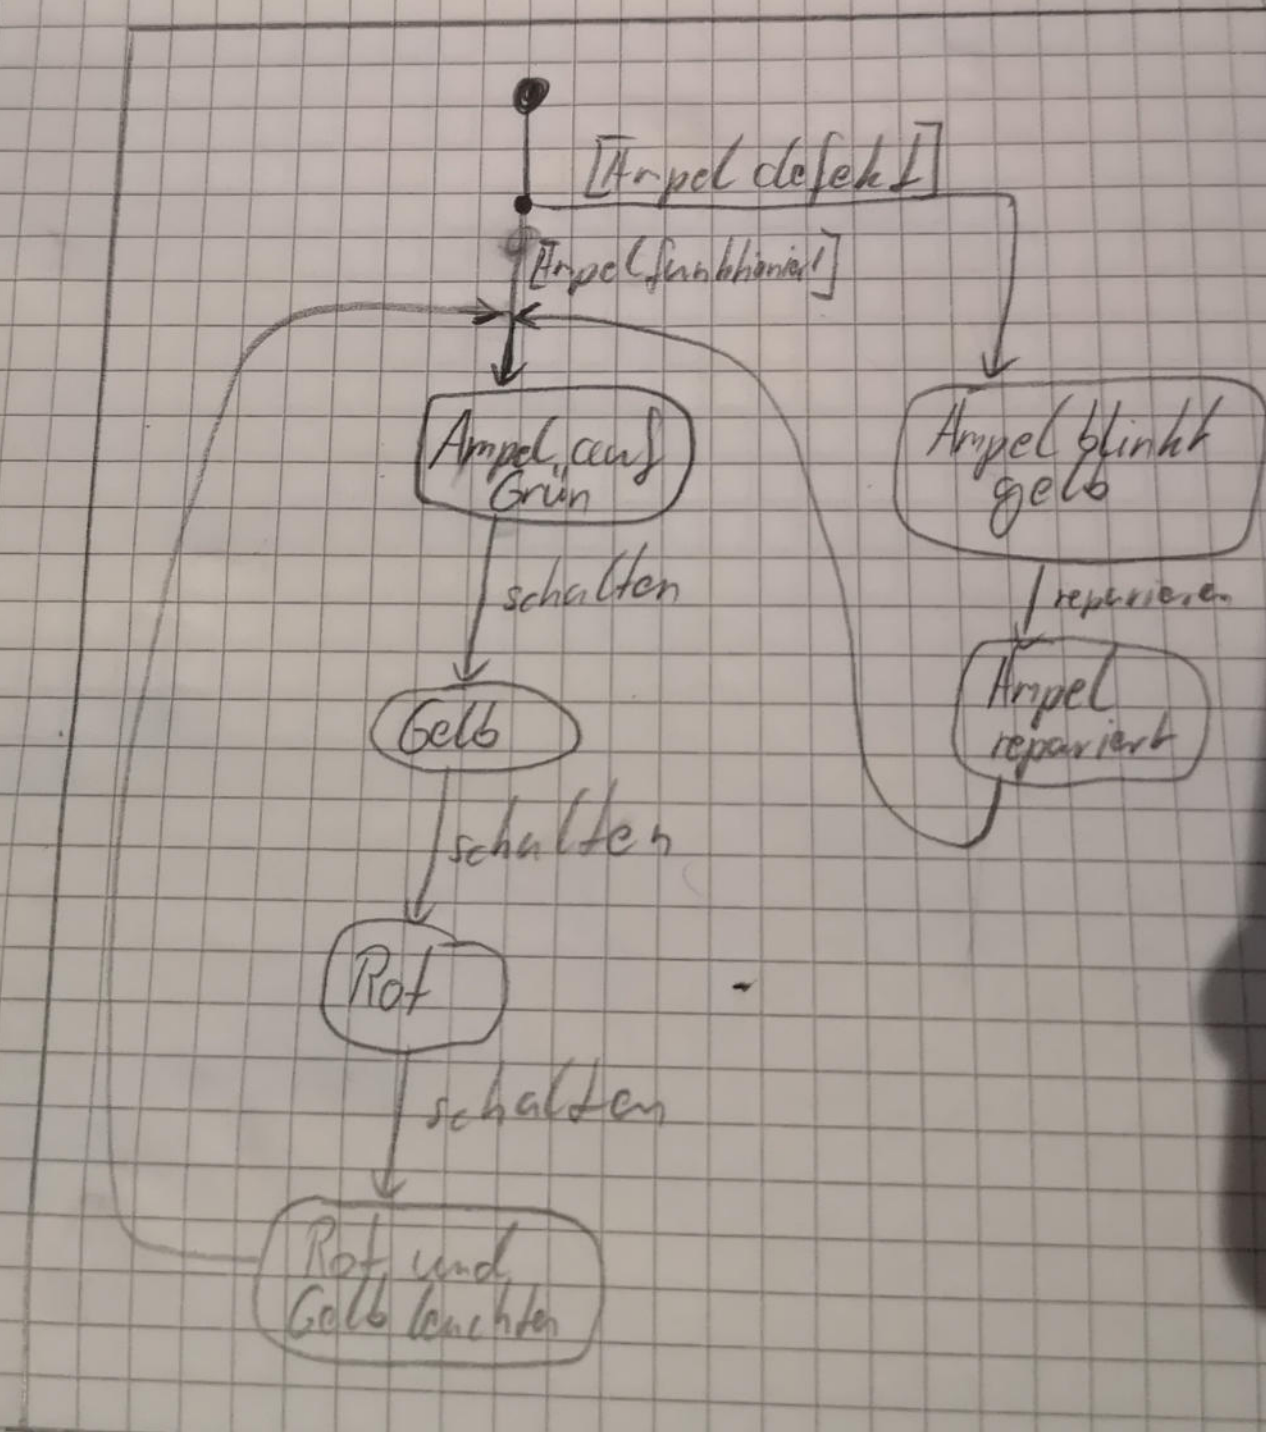 [Ampel defekt]
[Ampel funktioniert]
Ampel auf
Grün
Ampel blinkt
gelb
schalten
reparieren
Gelb
Ampel
repariert
schalten
Rot
schalten
Rot und
Gelb leuchten